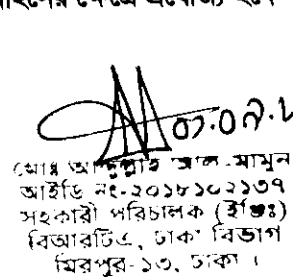 ক্ষেত্রে প্রযোজ্য হবে
০১.০৯.২
মোঃ আব্দুল্লাহ আল-মামুন
আইডি নং-২০১৮১০২১৩৭
সহকারী পরিচালক (ইঞ্জিঃ)
বিআরটিএ, ঢাকা বিভাগ
মিরপুর-১৩, ঢাকা ।